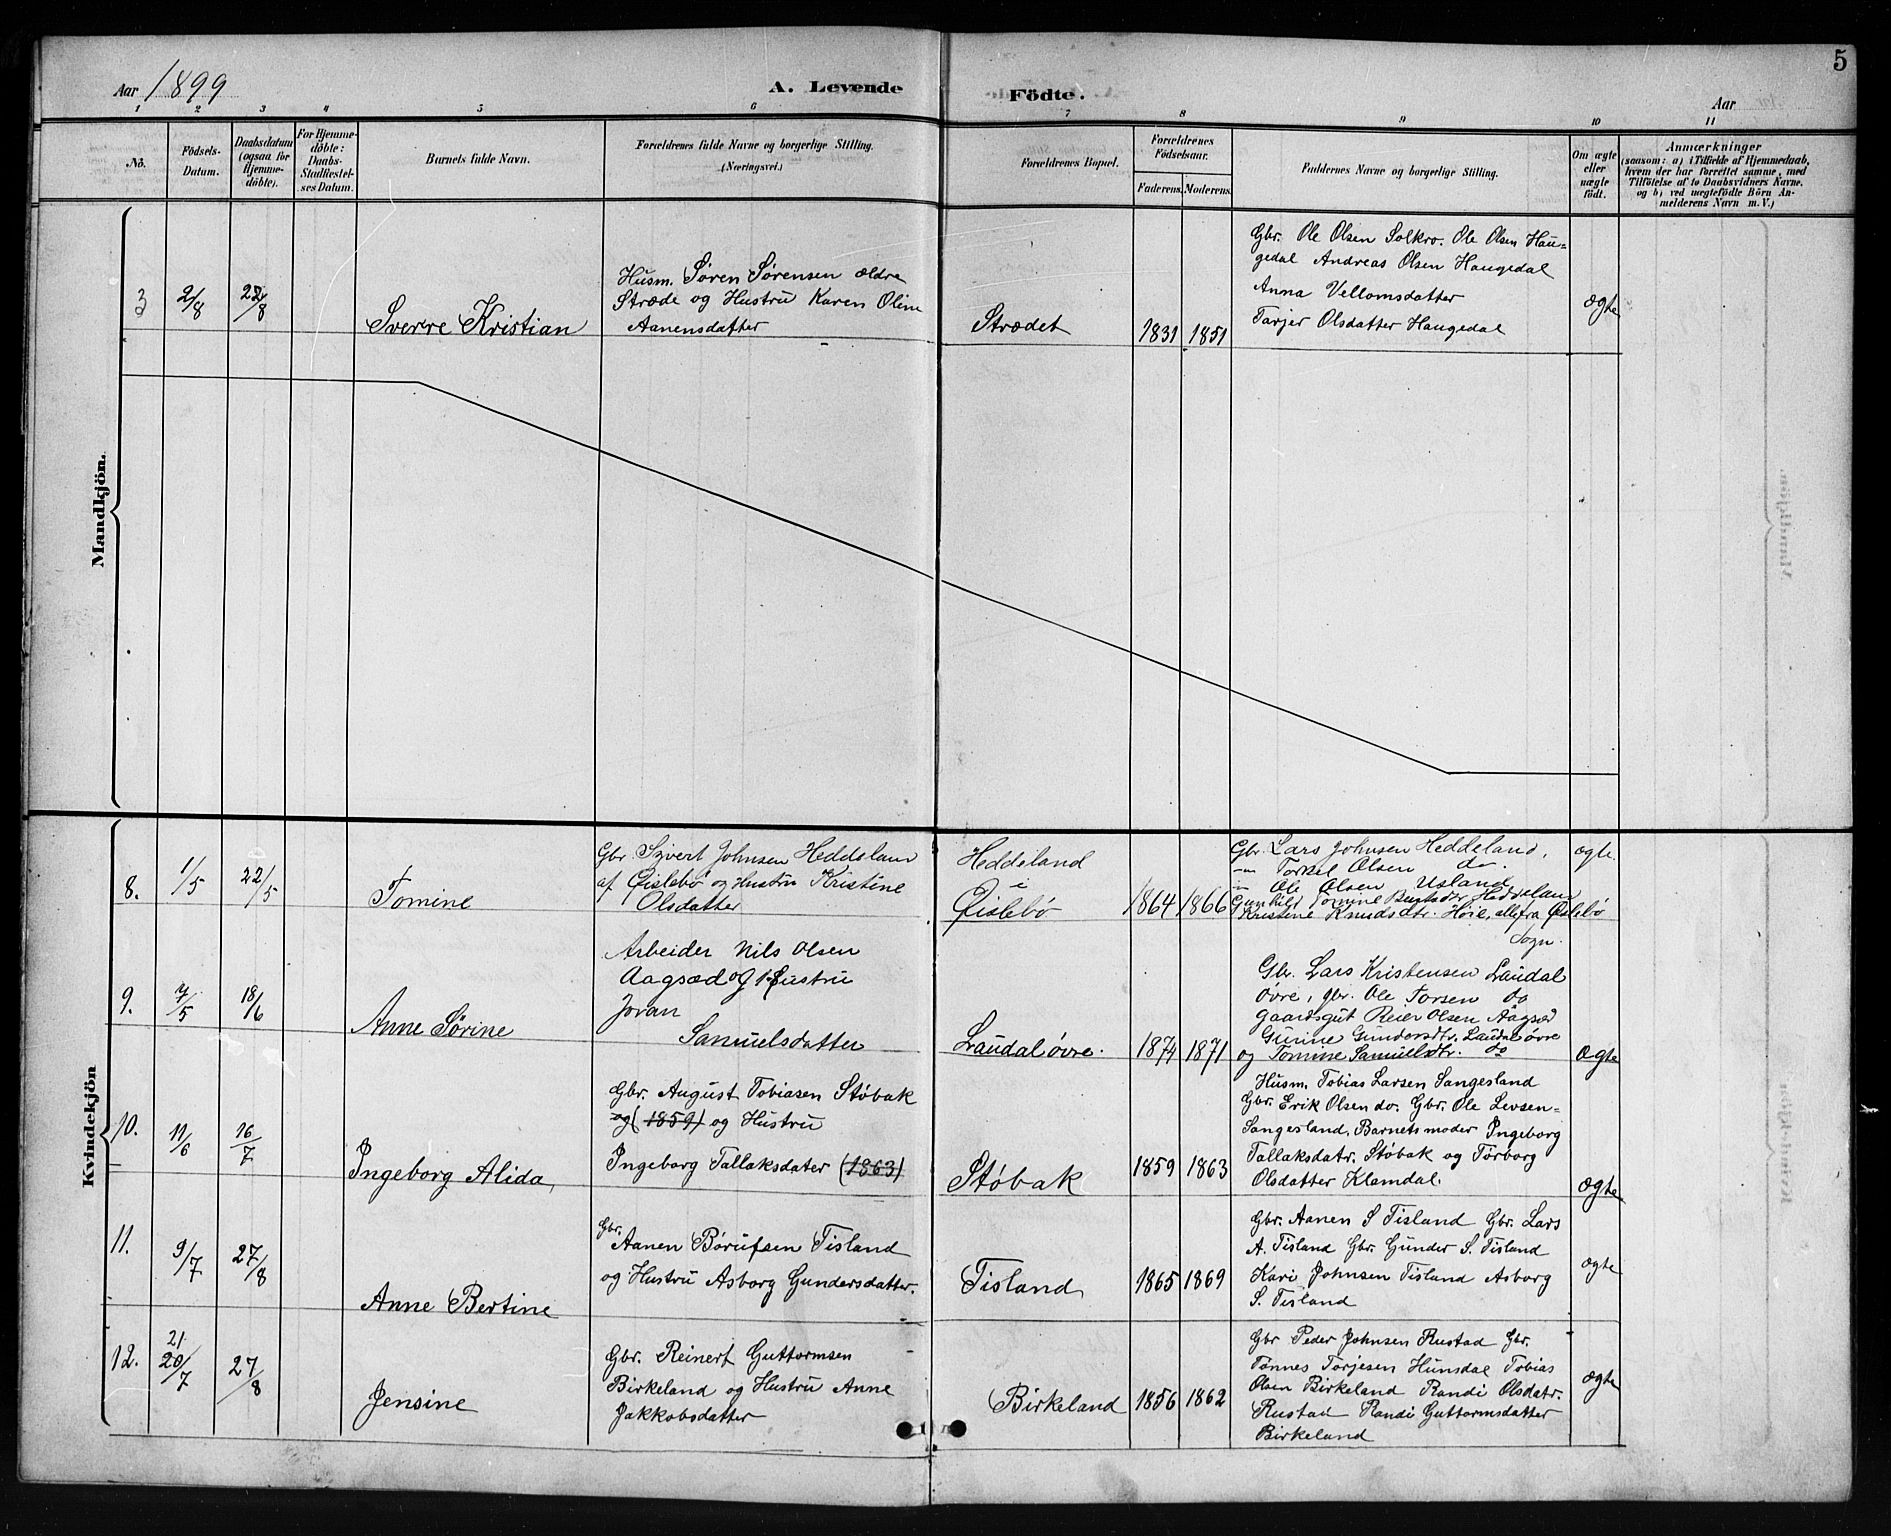 5
Aar 1899
A. Levende Födte.
Aar
1 2 3 4 5 6 7 8 9 10 11
No.
Födsels-
Datum.
Daabsdatum
(ogsaa for
Hjemme-
döbte).
For Hjemme-
döbte:
Daabs-
Stadfestel-
ses Datum.
Barnets fulde Navn.
Forældrenes fulde Navne og borgerlige Stilling.
(Næringsvei.)
Forældrenes Bopæl.
Forældrenes
Födselsaar.
Faderens. Moderens.
Faddernes Navne og borgerlige Stilling.
Om ægte
eller
uægte
födt.
Anmærkninger
(saasom: a) i Tilfælde af Hjemmedaab,
hvem der har forrettet samme, med
Tilföielse af to Daabsvidners Navne.
og b) ved uægtefödte Börn An-
melderens Navn m. V.)
Mandkjön.
3
2/8
22/8
Sverre Kristian
Husm. Søren Sørensen ældre
Stræde og Hustru Karen Oline
Aanensdatter
Strædet
1831 1851
Gbr. Ole Olsen Solkro. Ole Olsen Hau=
gedal Andreas Olsen Haugedal
Anna Vellomsdatter
Tarjer Olsdatter Haugedal
ægte
Kvindekjön
8.
1/5
22/5
Tomine
Gbr. Sivert Johnsen Heddeland
af Øislebø og Hustru Kristine
Olsdatter
Heddeland
i
Øislebø
1864 1866
Gbr. Lars Johnsen Heddeland,
— Torkel Olsen do.
— Ole Olsen Usland
Gunhild Tomine Bentsdtr. Heddeland
Kristine Knudsdtr. Høie, alle fra Øislebø
Sogn.
ægte.
9.
7/5
18/6
Anne Sørine
Arbeider Nils Olsen
Aagsæd og Hustru
Joran
Samuelsdatter
Laudal øvre.
1874 1871
Gbr. Lars Kristensen Laudal
øvre, gbr. Ole Torsen do
gaardsgut Reier Olsen Aagsæd
Gunne Gundersdtr. Laudal øvre
og Tomine Samuelsdtr. do
ægte
10.
11/6
16/7
Ingeborg Alida,
Gbr. August Tobiasen Støbak
og (1859) og Hustru
Ingeborg Tallaksdater (1863)
Støbak
1859 1863
Husm. Tobias Larsen Sangesland
Gbr. Erik Olsen do. Gbr. Ole Levsen=
Sangesland, Barnets moder Ingeborg
Tallaksdatr. Støbak og Tørborg
Olsdatter Klemdal.
ægte
11.
9/7
27/8
Anne Bertine
Gbr.
Aanen Børufsen Tisland
og Hustru Asborg Gundersdatter.
Tisland
1865 1869
Gbr. Aanen S Tisland Gbr. Lars
A. Tisland Gbr. Gunder S. Tisland
Kari Johnsen Tisland Asborg
S. Tisland
ægte
12.
21
20/7
27/8
Jensine
Gbr. Reinert Guttormsen
Birkeland og Hustru Anne
Jakkobsdatter
Birkeland
1856 1862
Gbr Peder Johnsen Rustad Gbr.
Tønnes Tørjesen Hunsdal Tobias
Olsen Birkeland Randi Olsdatr.
Rustad Randi Guttormsdatter
Birkeland
ægte